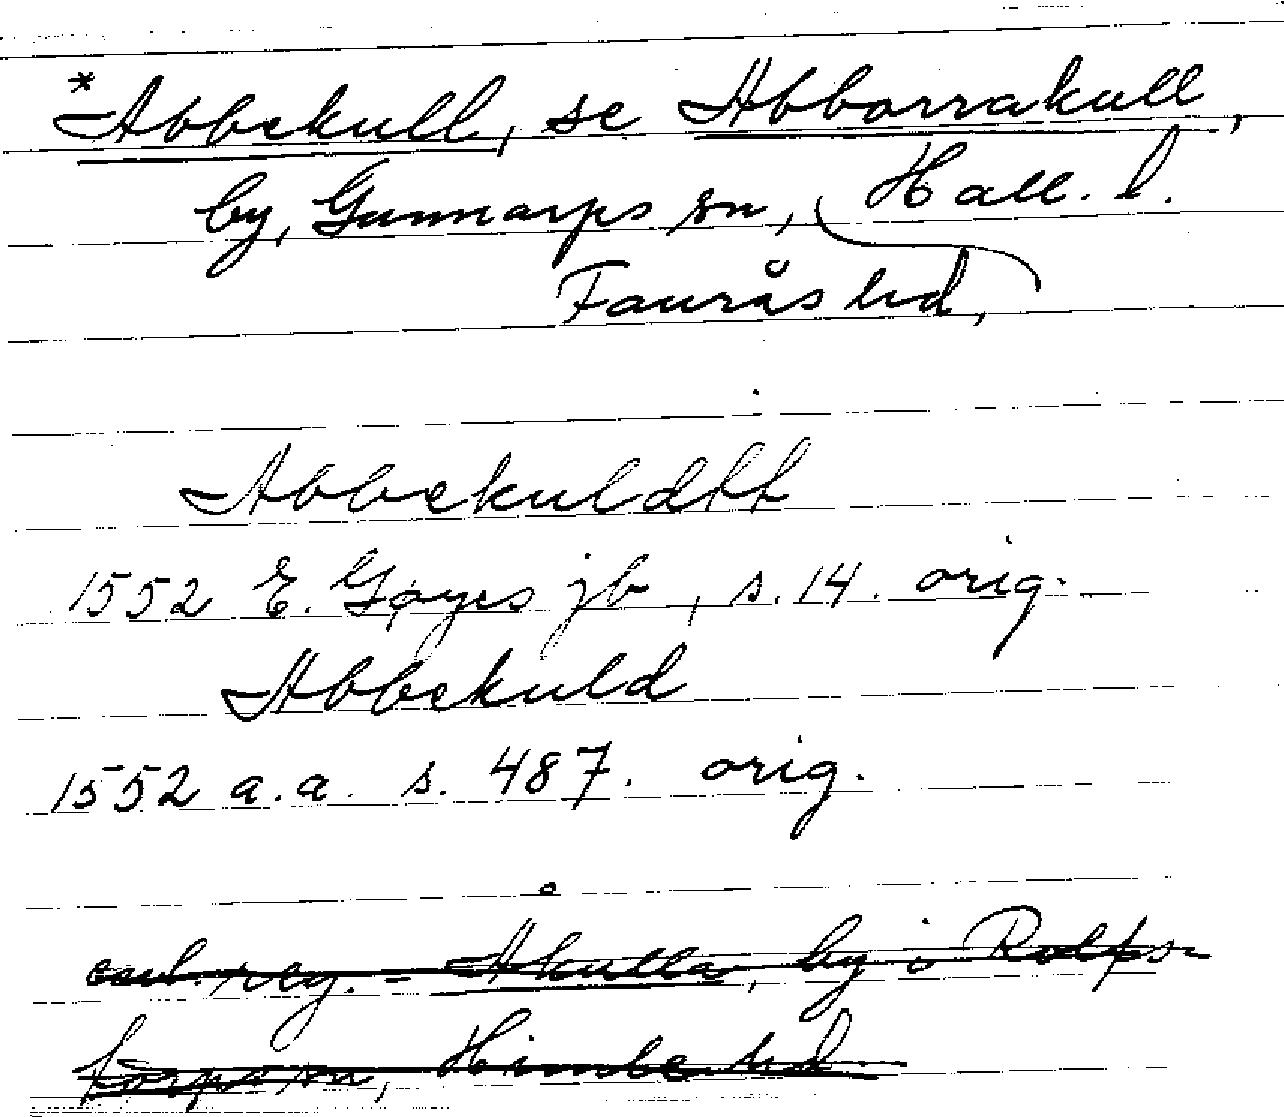 *Abbekull, se Abborrakull,
by, Gunnarps sn, Hall. l.
Faurås hd,
Abbekuldtt
1552 E. Gøyes jb, s. 14. orig.
Abbekuld
1552 a.a. s. 487. orig.
enl. reg. = Åkulla, by i Rolfs-
torps sn, Himle hd.